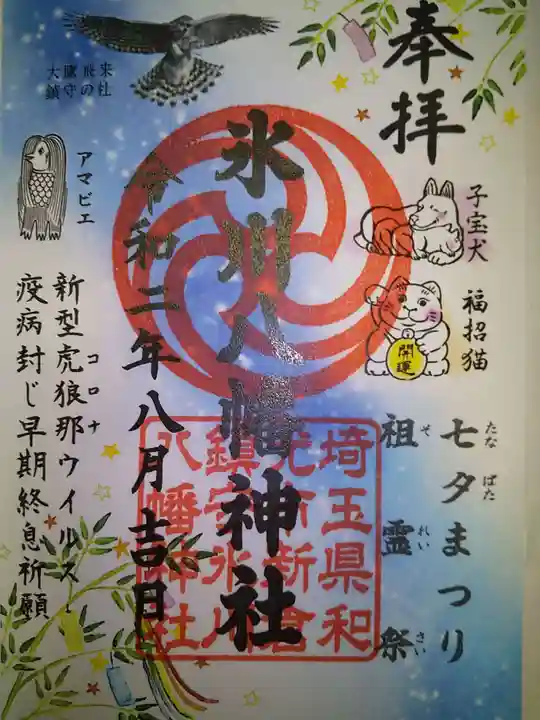 奉拝
子宝犬
福招猫
開運
七夕まつり
たなばた
祖霊祭
それいさい
氷川八幡神社
埼玉県和
光市新倉
鎮守氷川
八幡神社
令和二年八月吉日
来社
飛の
鷹守
大鎮
アマビエ
新型虎狼那ウイルス
コロナ
疫病封じ早期終息祈願